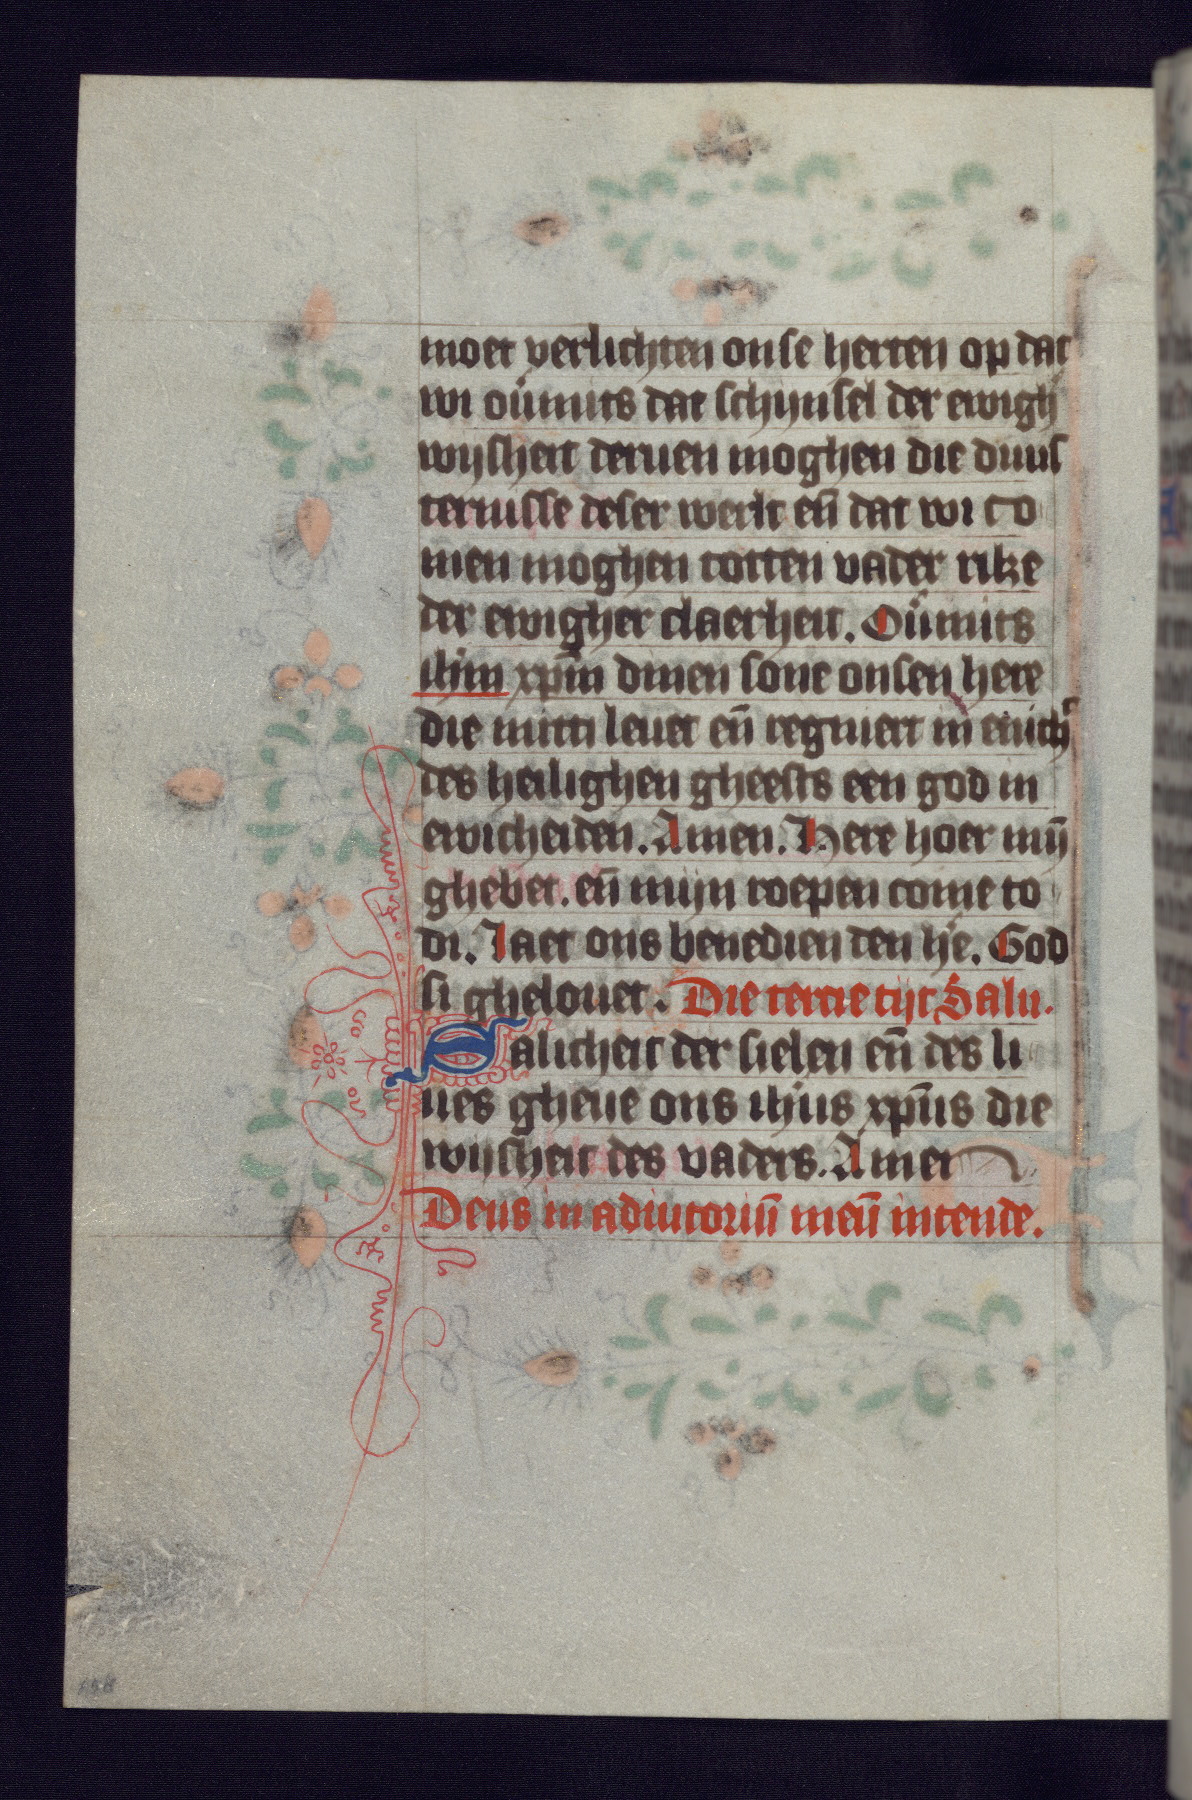 moet verlichten onse herten op dat
wi ou̅mits dat schijnsel der ewigh̅
wijsheit deruen moghen die duus
ternisse deser werlt en̅ dat wi co
men moghen totten vader rike
der ewigher claerheit. Ou̅mits
ih̅m xp̅m dinen sone onsen here
die mitti leuet en̅ regniert in enich̅
des heilighen gheests een god in
ewicheiden. Amen. Here hoer mij̅
ghebet. en̅ mijn roepen come to
di. Laet ons benedien den h̅e. God
si ghelouet. Die tercie tijt Salu.
Salicheit der sielen en̅ des li
ues gheue ons ih̅us xp̅us die
wijsheit des vaders. Amen
Deus in adiutoriu̅ meu̅ intende.